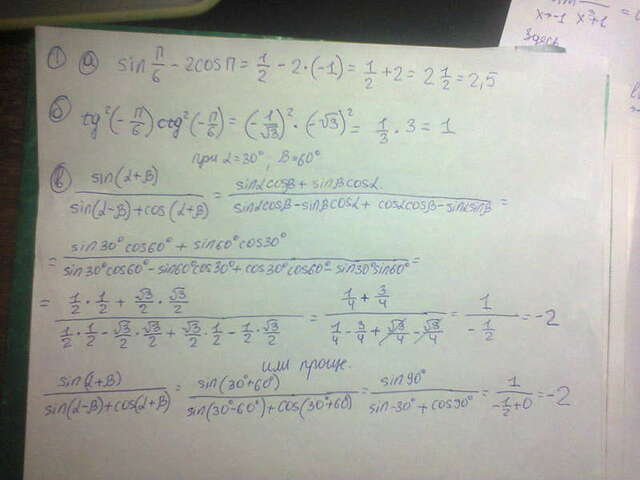 lim
x→-1 x³+1 =
Здесь
① ⓐ sin π/6 - 2cos π = 1/2 - 2·(-1) = 1/2 + 2 = 2 1/2 = 2,5
ⓑ tg²(-π/6) ctg²(-π/6) = (-1/√3)² · (-√3)² = 1/3 · 3 = 1
при α=30°; β=60°
ⓑ sin(α+β) / sin(α-β)+cos(α+β) = sinαcosβ + sinβcosα / sinαcosβ-sinβcosα+cosαcosβ-sinαsinβ =
= sin30°cos60° + sin60°cos30° / sin30°cos60°-sin60°cos30°+cos30°cos60°-sin30°sin60° =
= 1/2 · 1/2 + √3/2 · √3/2 / 1/2 · 1/2 - √3/2 · √3/2 + √3/2 · 1/2 - 1/2 · √3/2 = 1/4 + 3/4 / 1/4 - 3/4 + √3/4 - √3/4 = 1 / -1/2 = -2
или проще.
sin(α+β) / sin(α-β)+cos(α+β) = sin(30°+60°) / sin(30°-60°)+cos(30°+60°) = sin90° / sin-30°+cos90° = 1 / -1/2+0 = -2